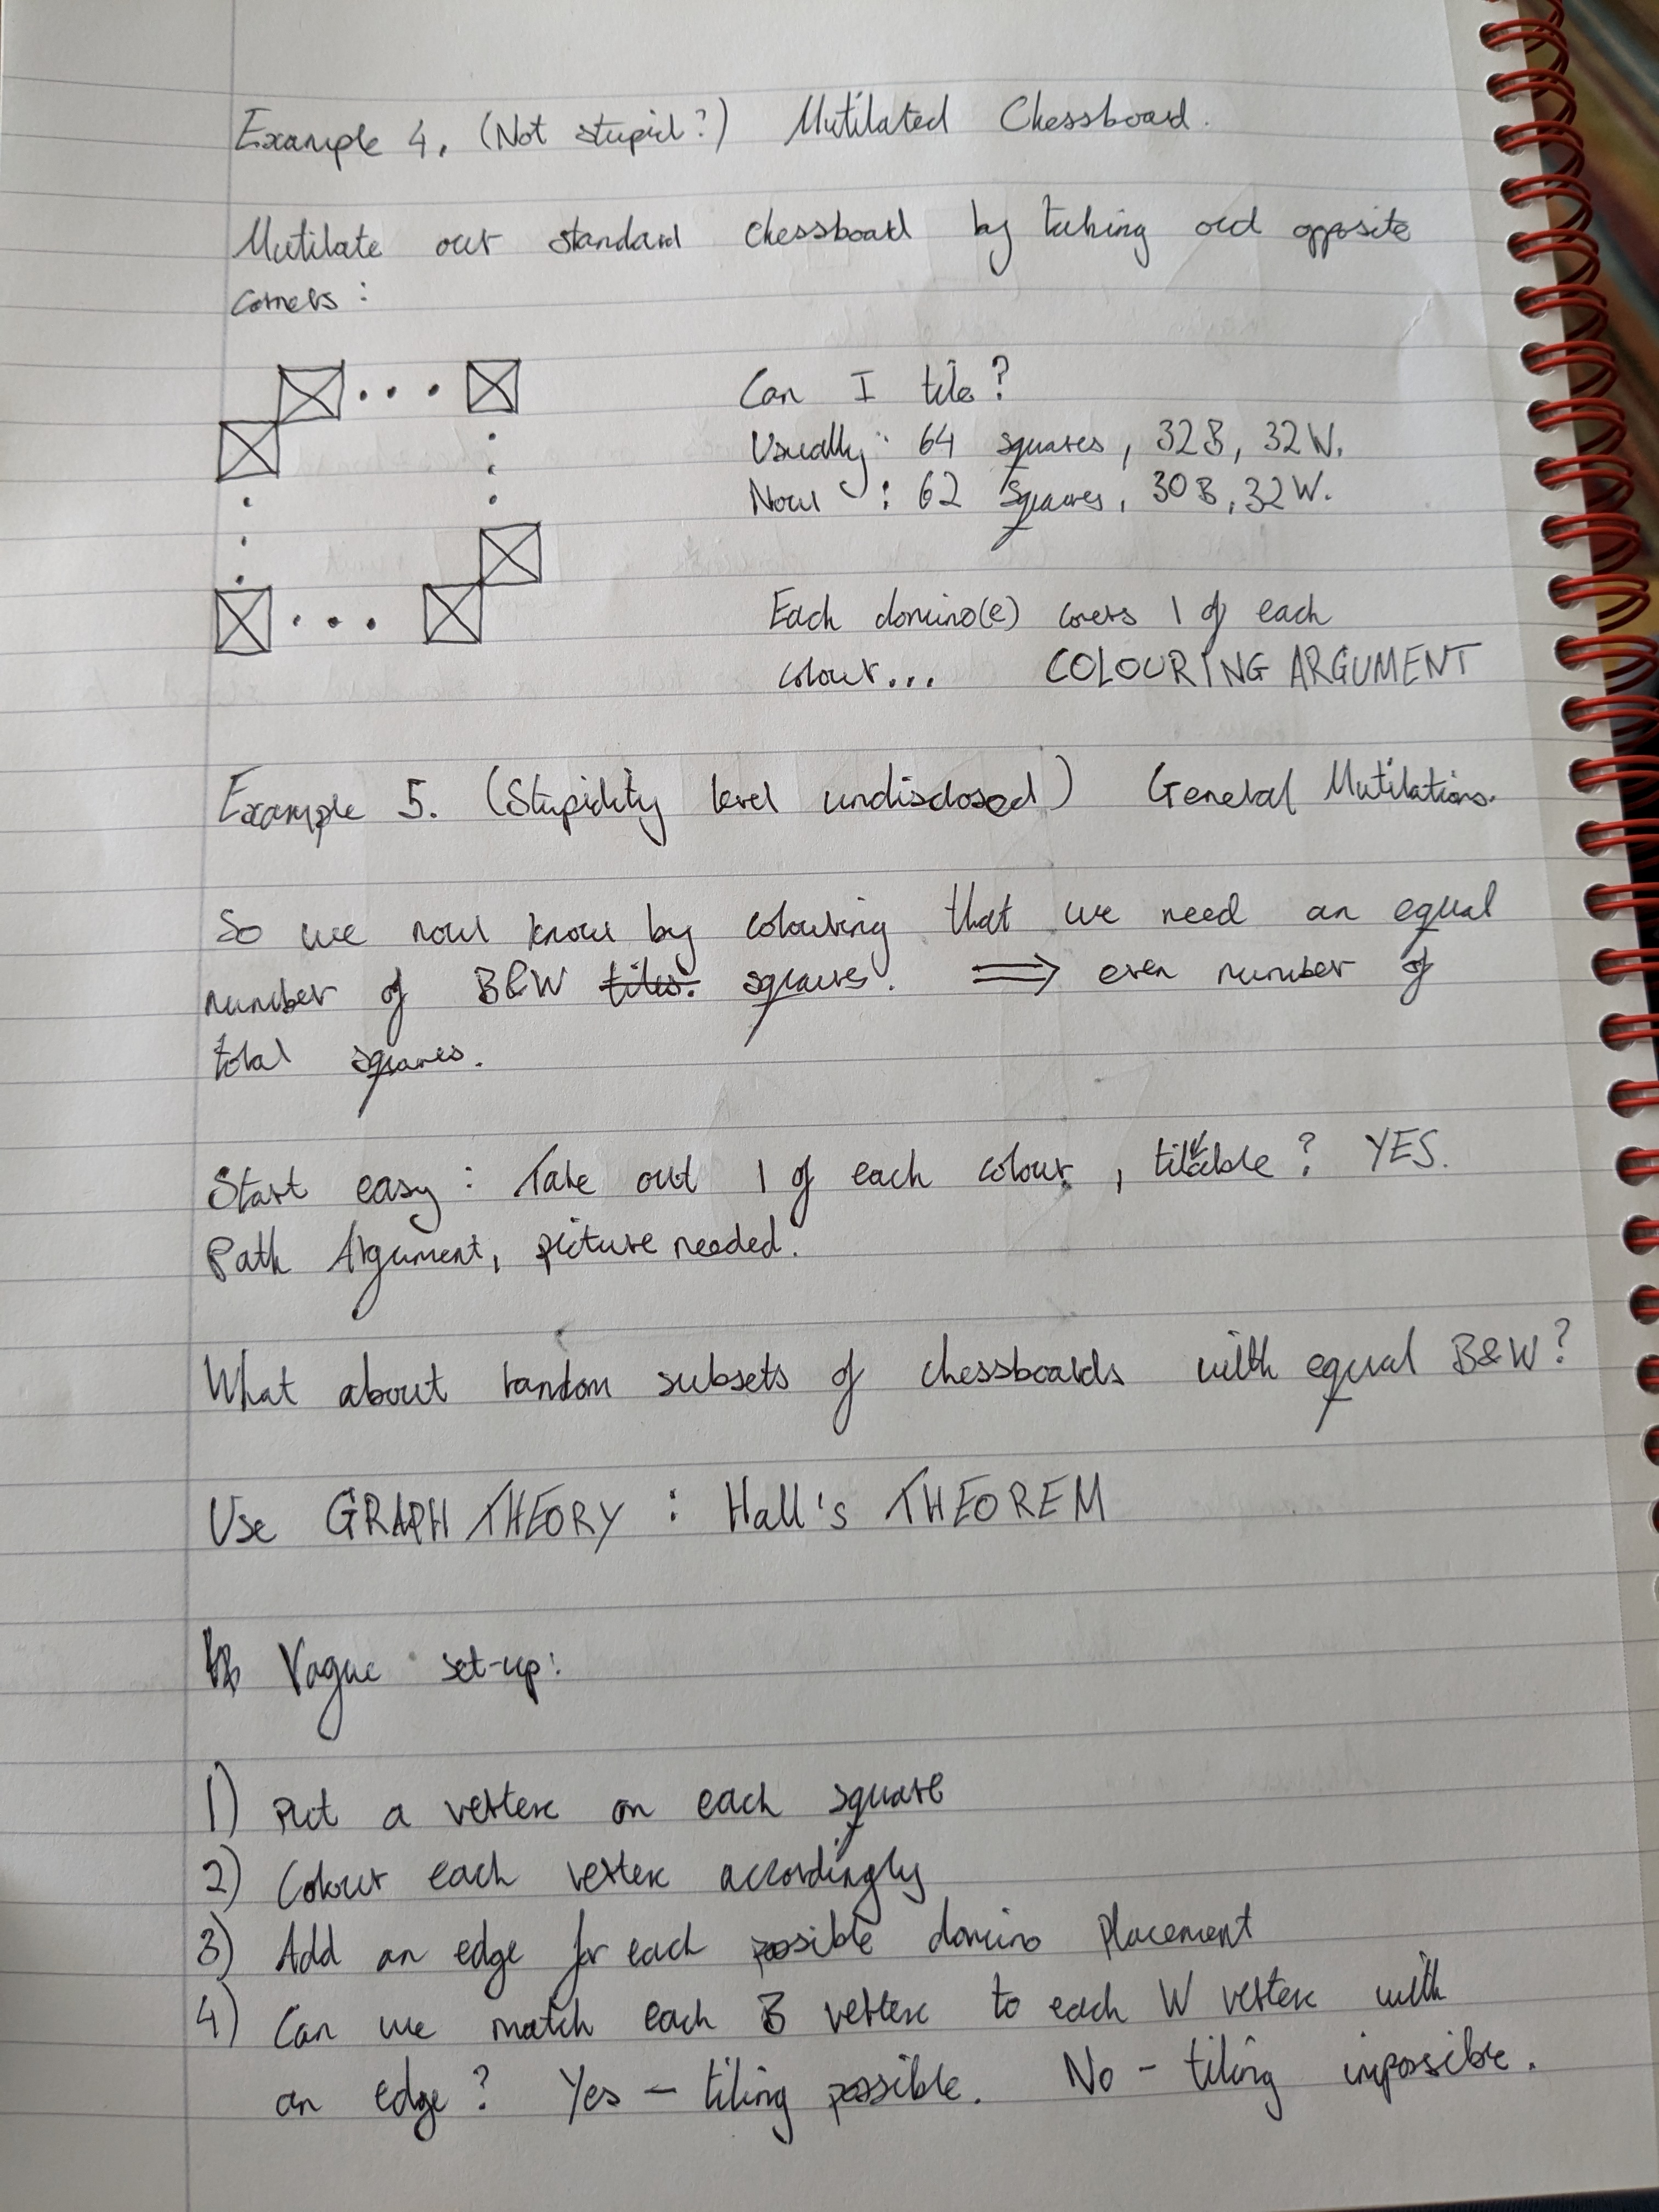 Example 4. (Not stupid?) Mutilated Chessboard.
Mutilate our standard chessboard by taking out opposite
corners :
Can I tile?
Usually : 64 squares, 32B, 32W.
Now : 62 squares, 30B, 32W.
Each domino(e) covers 1 of each
colour... COLOURING ARGUMENT
Example 5. (Stupidity level undisclosed) General Mutilations.
So we now know by colouring that we need an equal
number of B&W tiles. squares. ⟹ even number of
total squares.
Start easy : Take out 1 of each colour, tileable? YES.
Path Argument, picture needed.
What about random subsets of chessboards with equal B&W?
Use GRAPH THEORY : Hall's THEOREM
Vague set-up:
1) Put a vertex on each square
2) Colour each vertex accordingly
3) Add an edge for each possible domino placement
4) Can we match each B vertex to each W vertex with
an edge? Yes – tiling possible. No – tiling impossible.